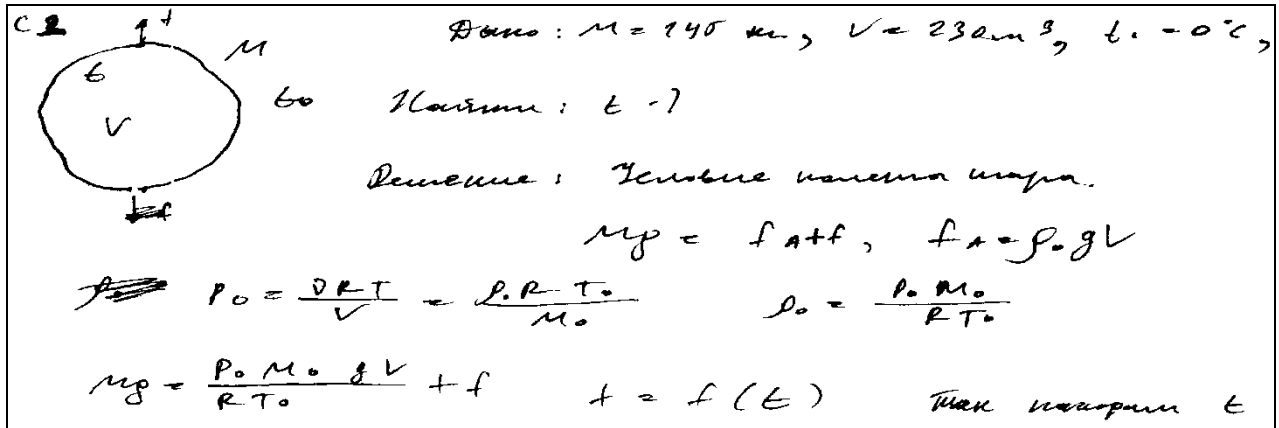 С2 f
M Дано: M = 145 кг, V = 230 m³, t₀ = 0°C,
t
t₀ Найти: t - ?
V
Решение: Условие полета шара.
f
Mg = f_A + f, f_A = ρ₀gV
P₀ = νRT/V = ρ₀RT₀/M₀ ρ₀ = P₀M₀/RT₀
Mg = P₀M₀gV/RT₀ + f f = f(t) t